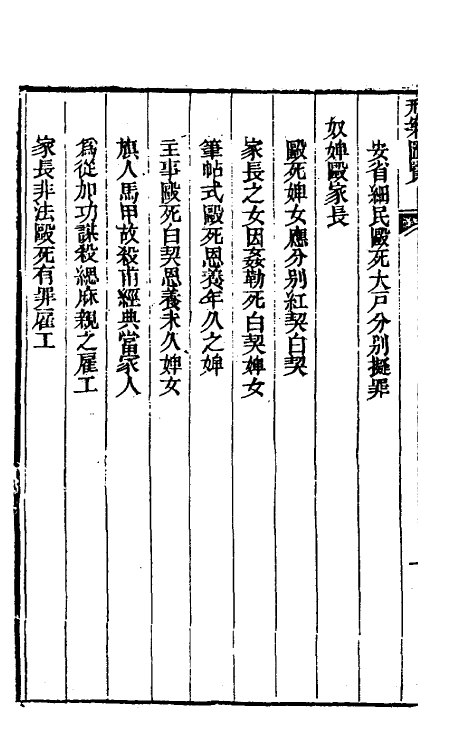 安省細民毆死大戸分別擬罪
奴婢毆家長
毆死婢女應分別紅契白契
家長之女因姦勒死白契婢女
筆帖式毆死恩養年久之婢
主事毆死白契恩養未久婢女
旗人馬甲故殺甫經典當家人
為從加功謀殺緦麻親之雇工
家長非法毆死有罪雇工